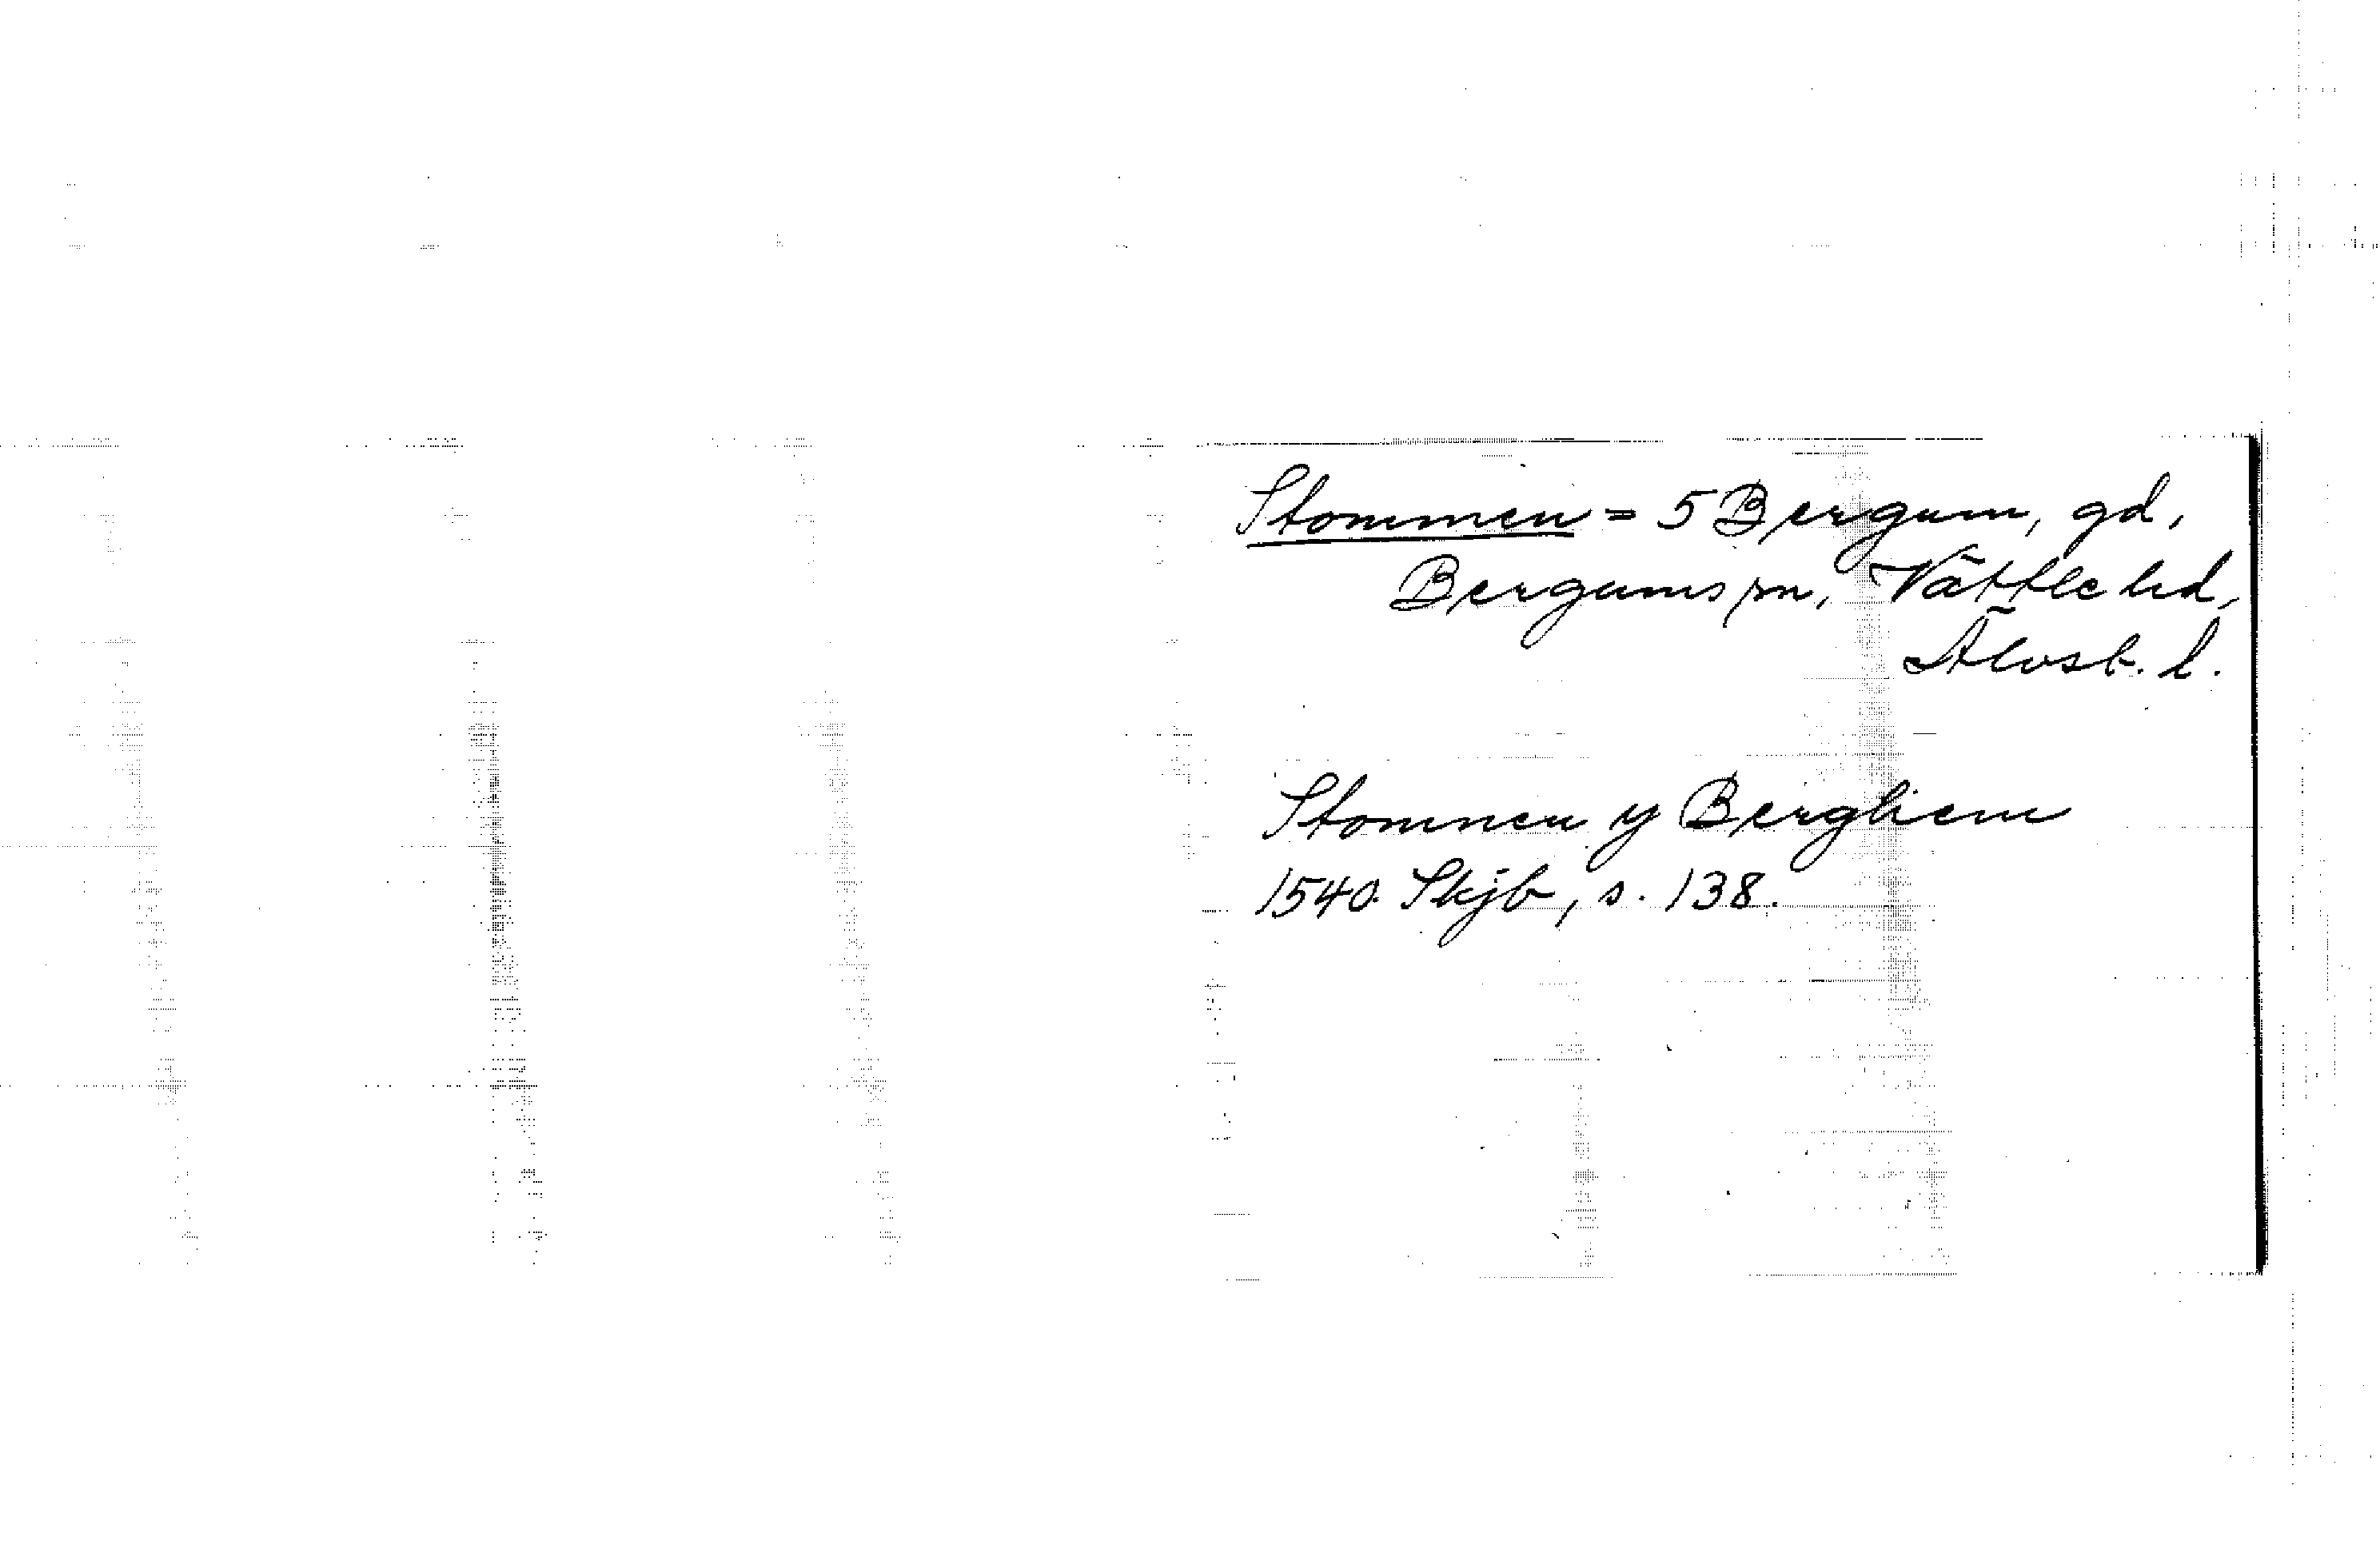 Stommen = 5 Bergum, gd,
Bergums sn, Vättle hd,
Älvsb. l.
Stomnen y Berghem
1540. Skjb, s. 138.